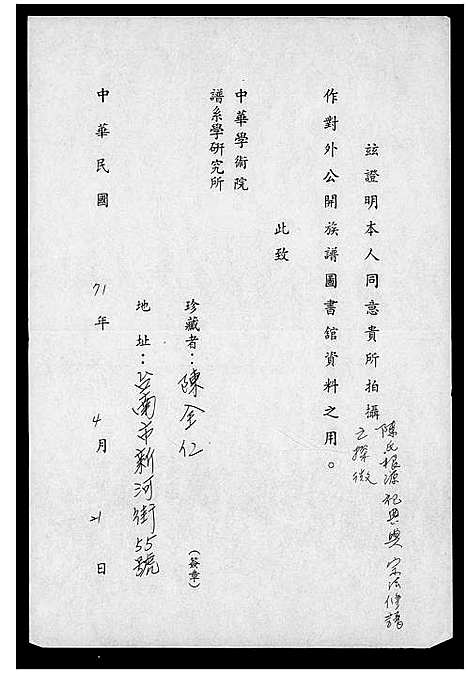 茲證明本人同意貴所拍攝
陳氏根源祀典與宗法修譜
之探微
作對外公開族譜圖書館資料之用。
此致
中華學術院
譜系學研究所
珍藏者：陳全仁 (簽章)
地址：台南市新河街55號
中華民國 71年 4月 21日